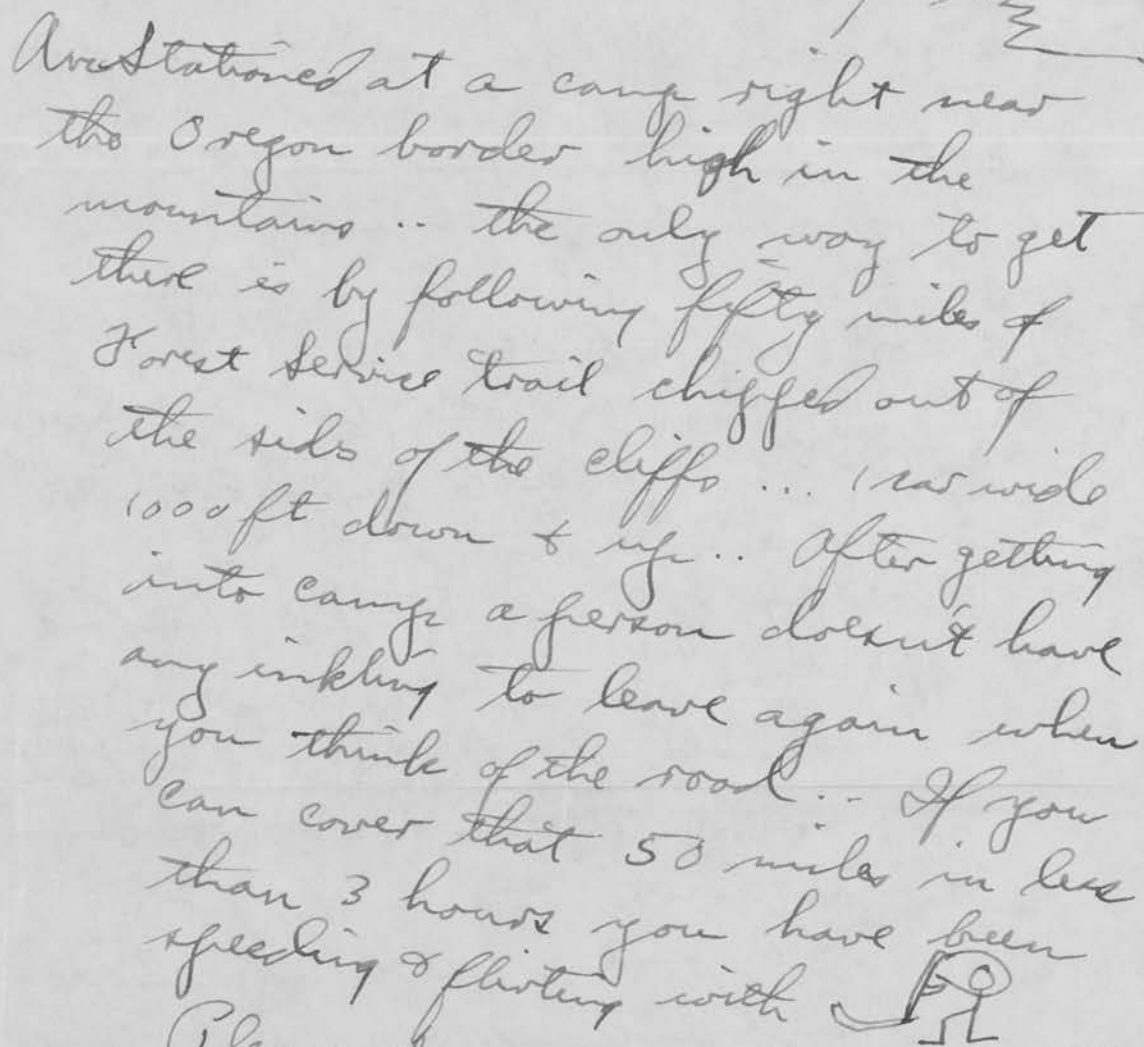 Am Stationed at a camp right near
the Oregon border high in the
mountains .. the only way to get
there is by following fifty miles of
Forest Service trail chipped out of
the side of the cliffs ... 1 car wide
1000 ft down & up .. After getting
into camp a person doesn't have
any inkling to leave again when
you think of the road .. If you
can cover that 50 miles in less
than 3 hours you have been
speeding & flirting with